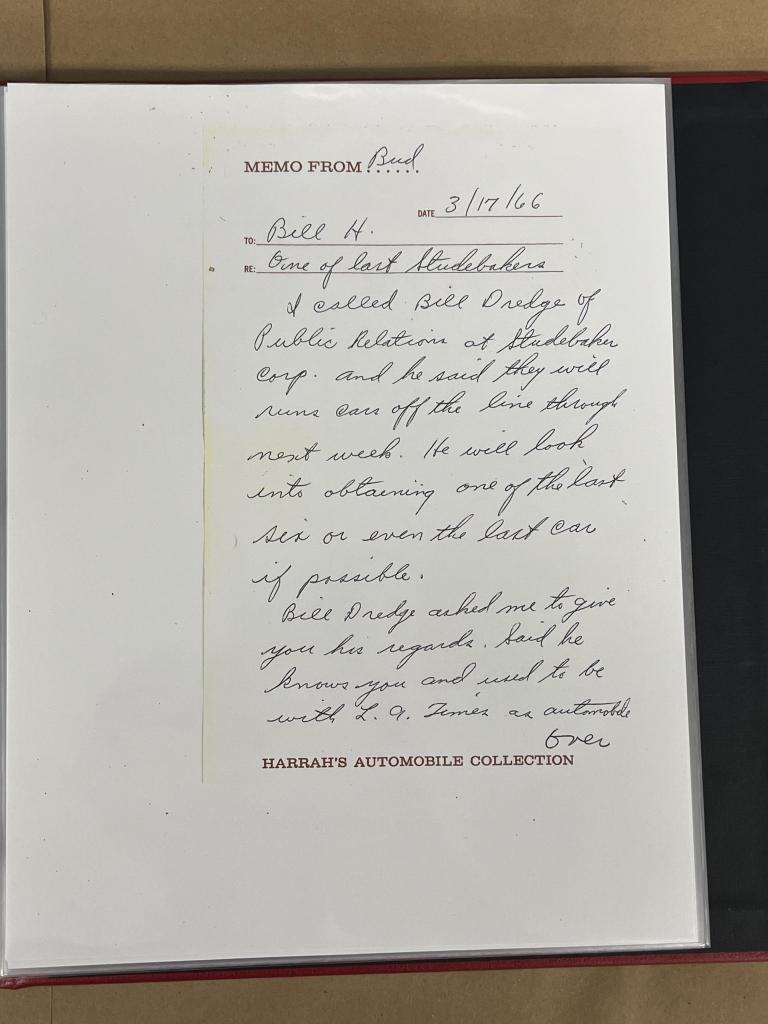 MEMO FROM Bud
DATE 3/17/66
TO: Bill H.
RE: One of last Studebakers
I called Bill Dredge of
Public Relations at Studebaker
Corp. and he said they will
runs cars off the line through
next week. He will look
into obtaining one of the last
six or even the last car
if possible.
Bill Dredge asked me to give
you his regards. Said he
knows you and used to be
with L.A. Times as automobile
Over
HARRAH'S AUTOMOBILE COLLECTION